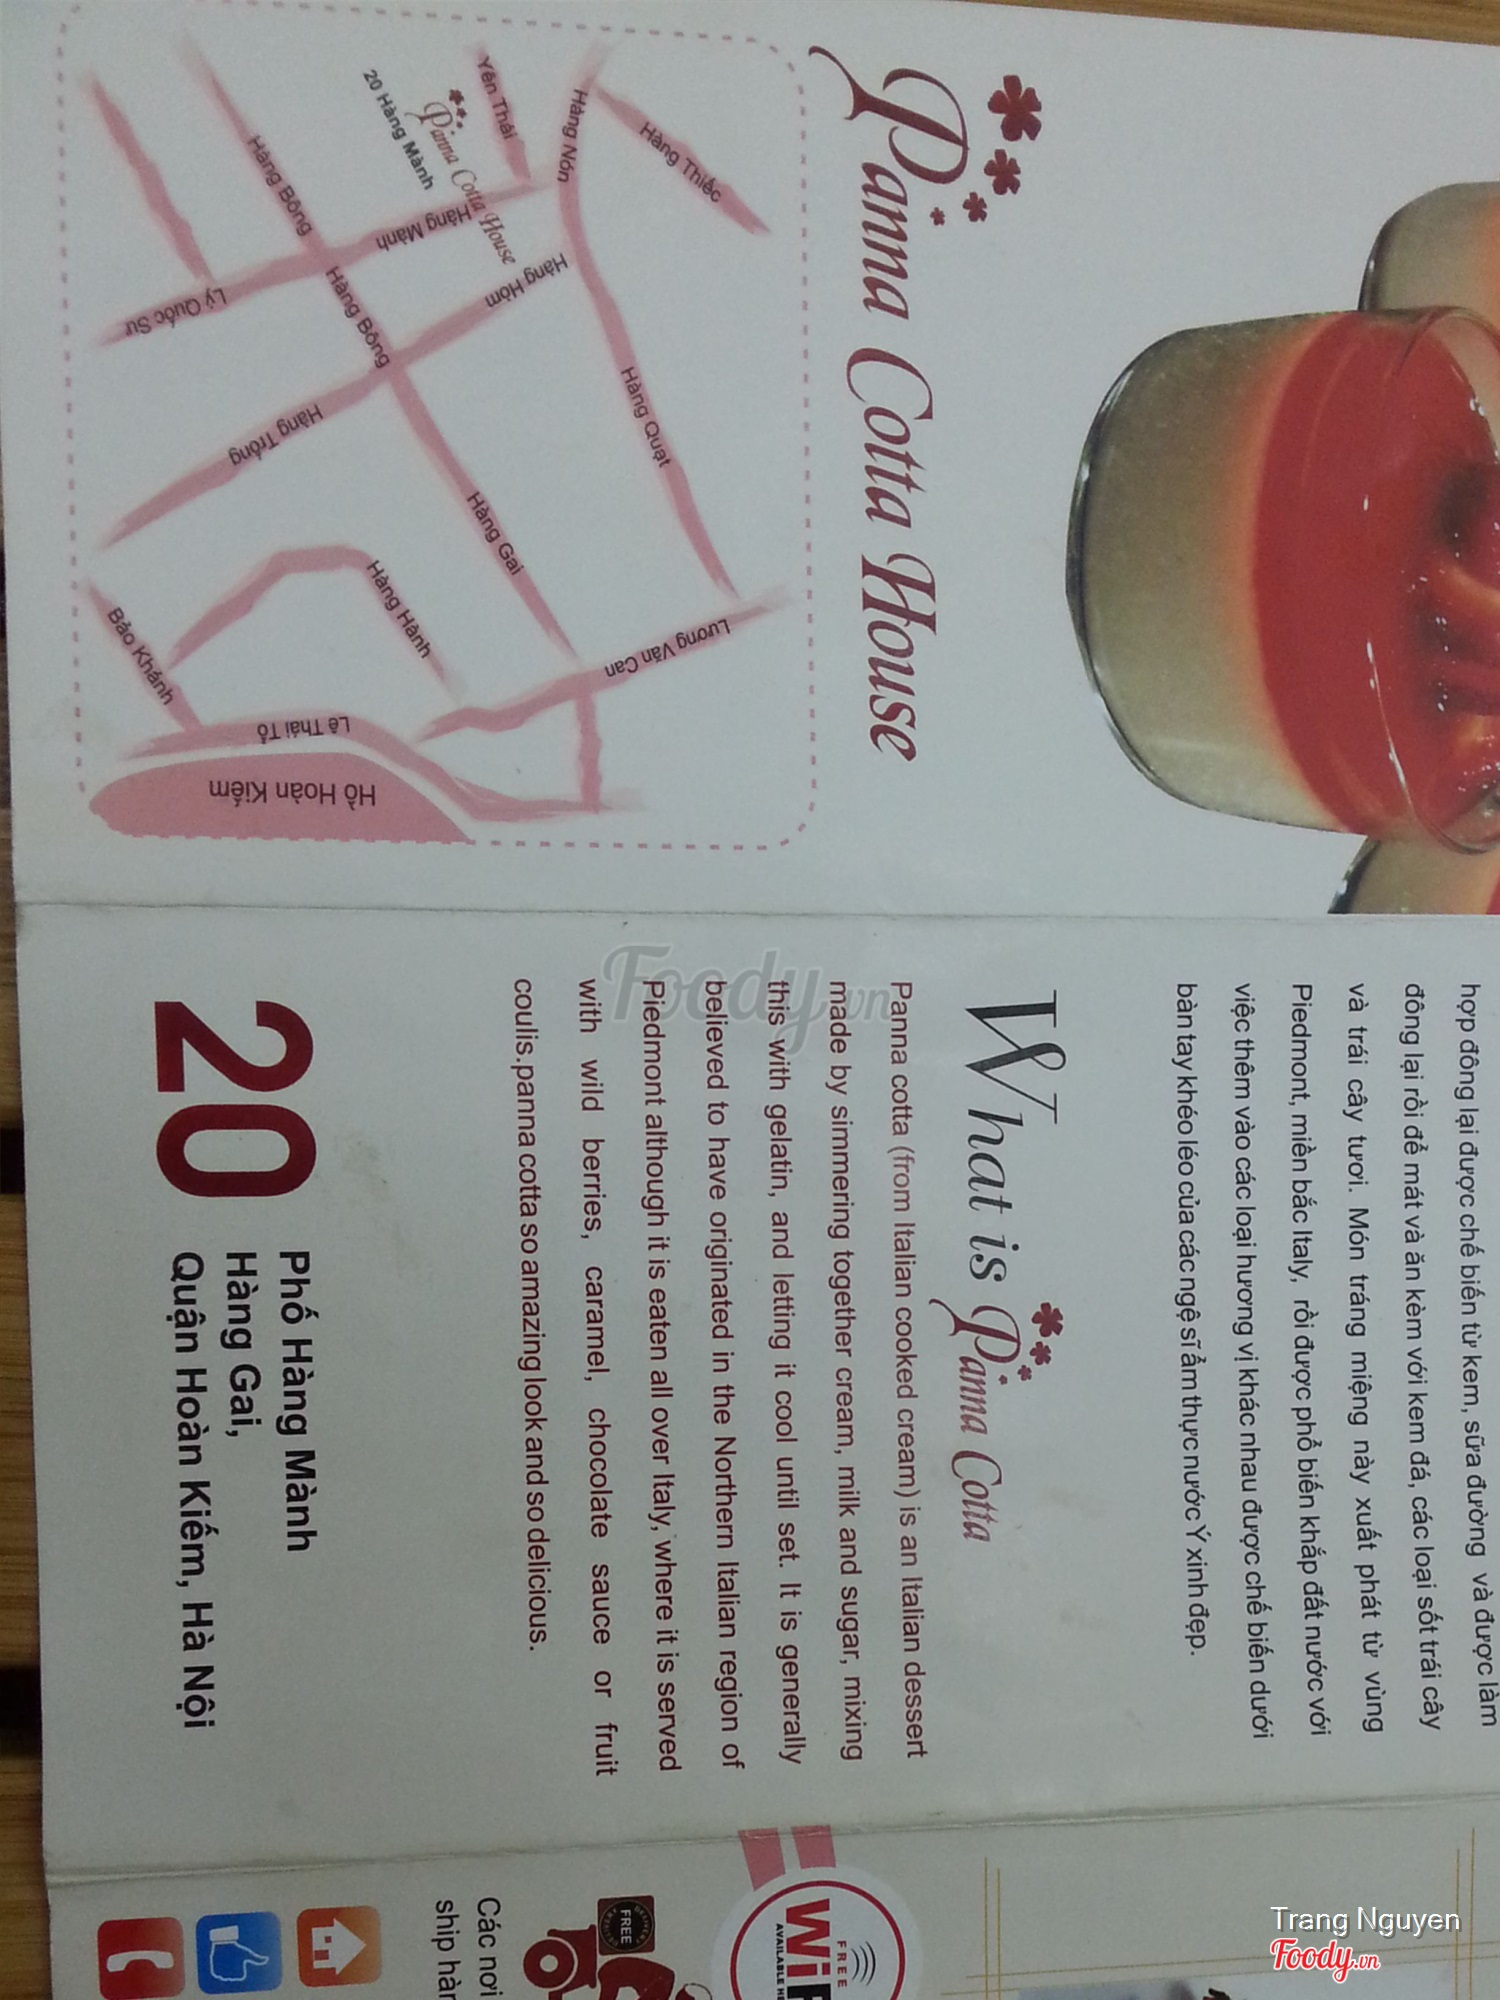 Panna Cotta House
Hàng Thiếc
Hàng Nón
Yên Thái
Panna Cotta House
20 Hàng Mành
Hàng Mành
Hàng Hòm
Hàng Quạt
Hàng Bông
Hàng Bông
Lý Quốc Sư
Hàng Trống
Hàng Gai
Lương Văn Can
Hàng Hành
Bảo Khánh
Lê Thái Tổ
Hồ Hoàn Kiếm
hợp đông lại được chế biến từ kem, sữa đường và được làm
đông lại rồi để mát và ăn kèm với kem đá, các loại sốt trái cây
và trái cây tươi. Món tráng miệng này xuất phát từ vùng
Piedmont, miền bắc Italy, rồi được phổ biến khắp đất nước với
việc thêm vào các loại hương vị khác nhau được chế biến dưới
bàn tay khéo léo của các ngệ sĩ ẩm thực nước Ý xinh đẹp.
What is Panna Cotta
Panna cotta (from Italian cooked cream) is an Italian dessert
made by simmering together cream, milk and sugar, mixing
this with gelatin, and letting it cool until set. It is generally
believed to have originated in the Northern Italian region of
Piedmont although it is eaten all over Italy, where it is served
with wild berries, caramel, chocolate sauce or fruit
coulis.panna cotta so amazing look and so delicious.
20
Phố Hàng Mành
Hàng Gai,
Quận Hoàn Kiếm, Hà Nội
FREE
WiF
AVAILABLE HE
FREE
Các nơi
ship hàn
Foody.vn
Trang Nguyen
Foody.vn